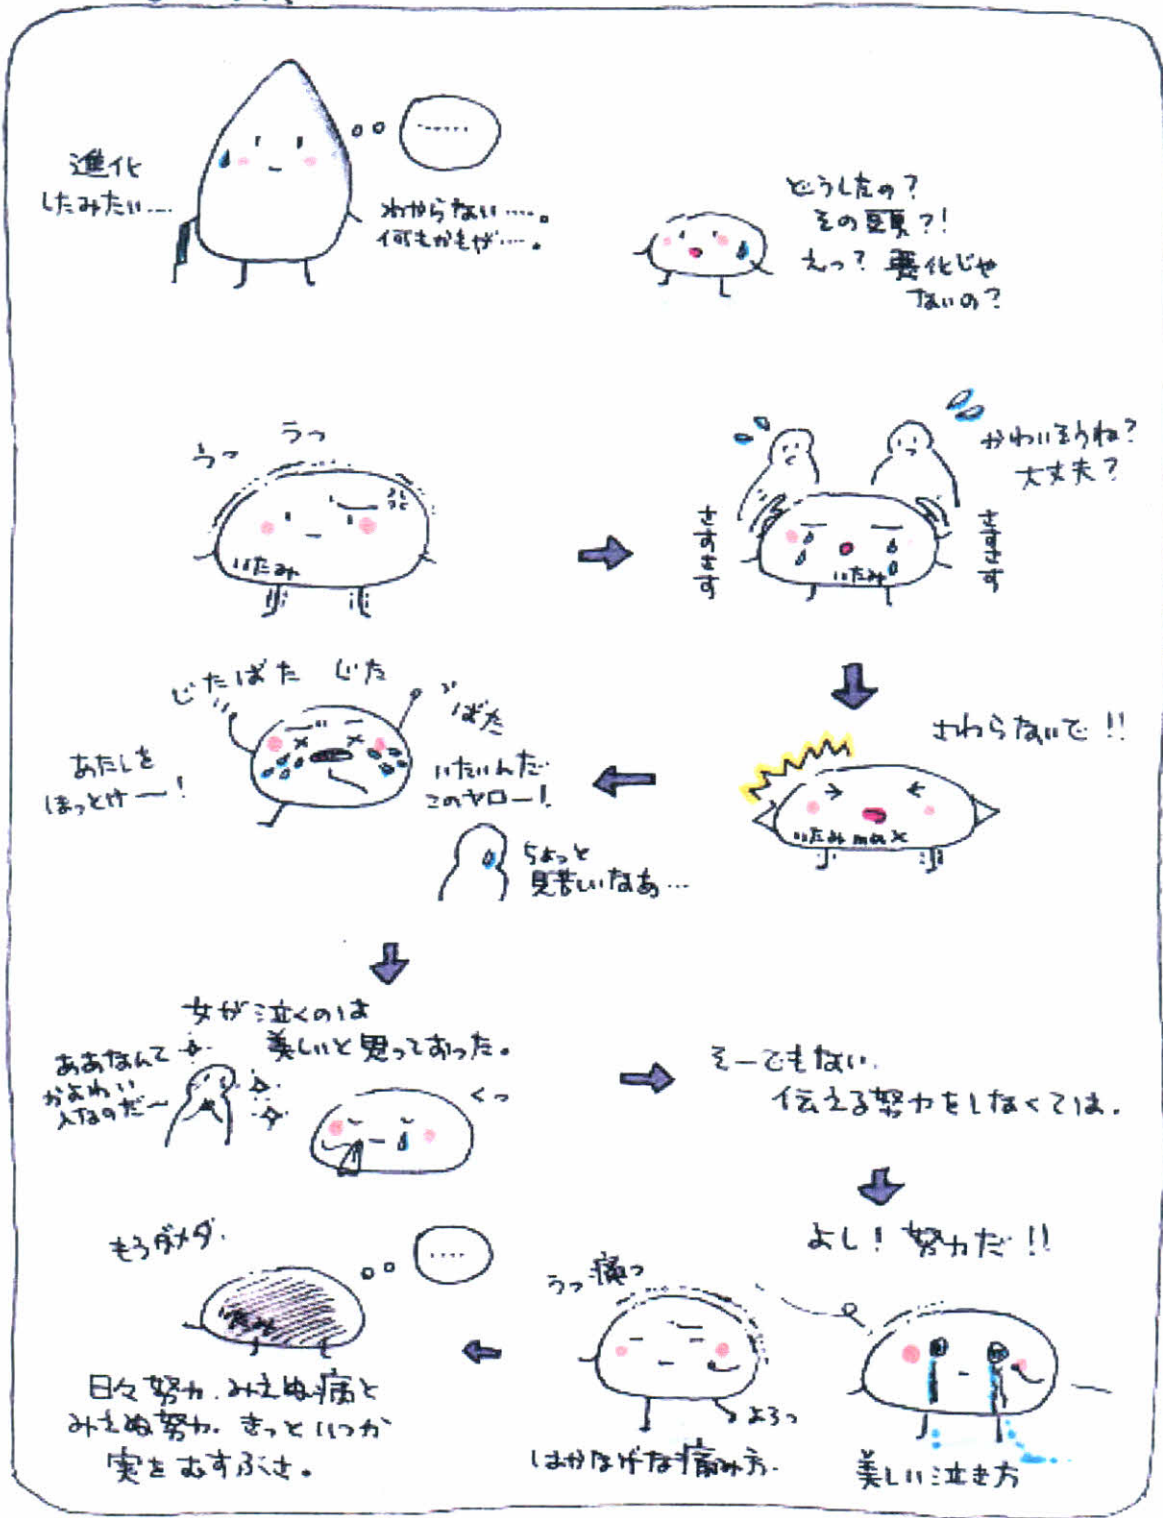 進化
したみたい……
……
わからない……。
何もかもが……。
どうしたの?
その頭?!
えっ? 悪化じゃ
ないの?
うっ
うっ
いたみ
かわいそうね?
大丈夫?
さすさす
さすさす
いたみ
さわらないで!!
いたみ max
じたばた じた
ばた
あたしを
ほっとけー!
いたいんだ
このヤロー!
ちょっと
見苦しいなあ…
女が泣くのは
美しいと思っておった。
ああなんて
かよわい
人なのだ〜
くっ
そーでもない.
伝える努力をしなくては.
よし!努力だ!!
美しい泣き方
うっ痛っ
よろっ
はかなげな痛み方.
もうダメダ.
....
いたみ
日々努力.みえぬ病と
みえぬ努力.きっといつか
実をむすぶさ。